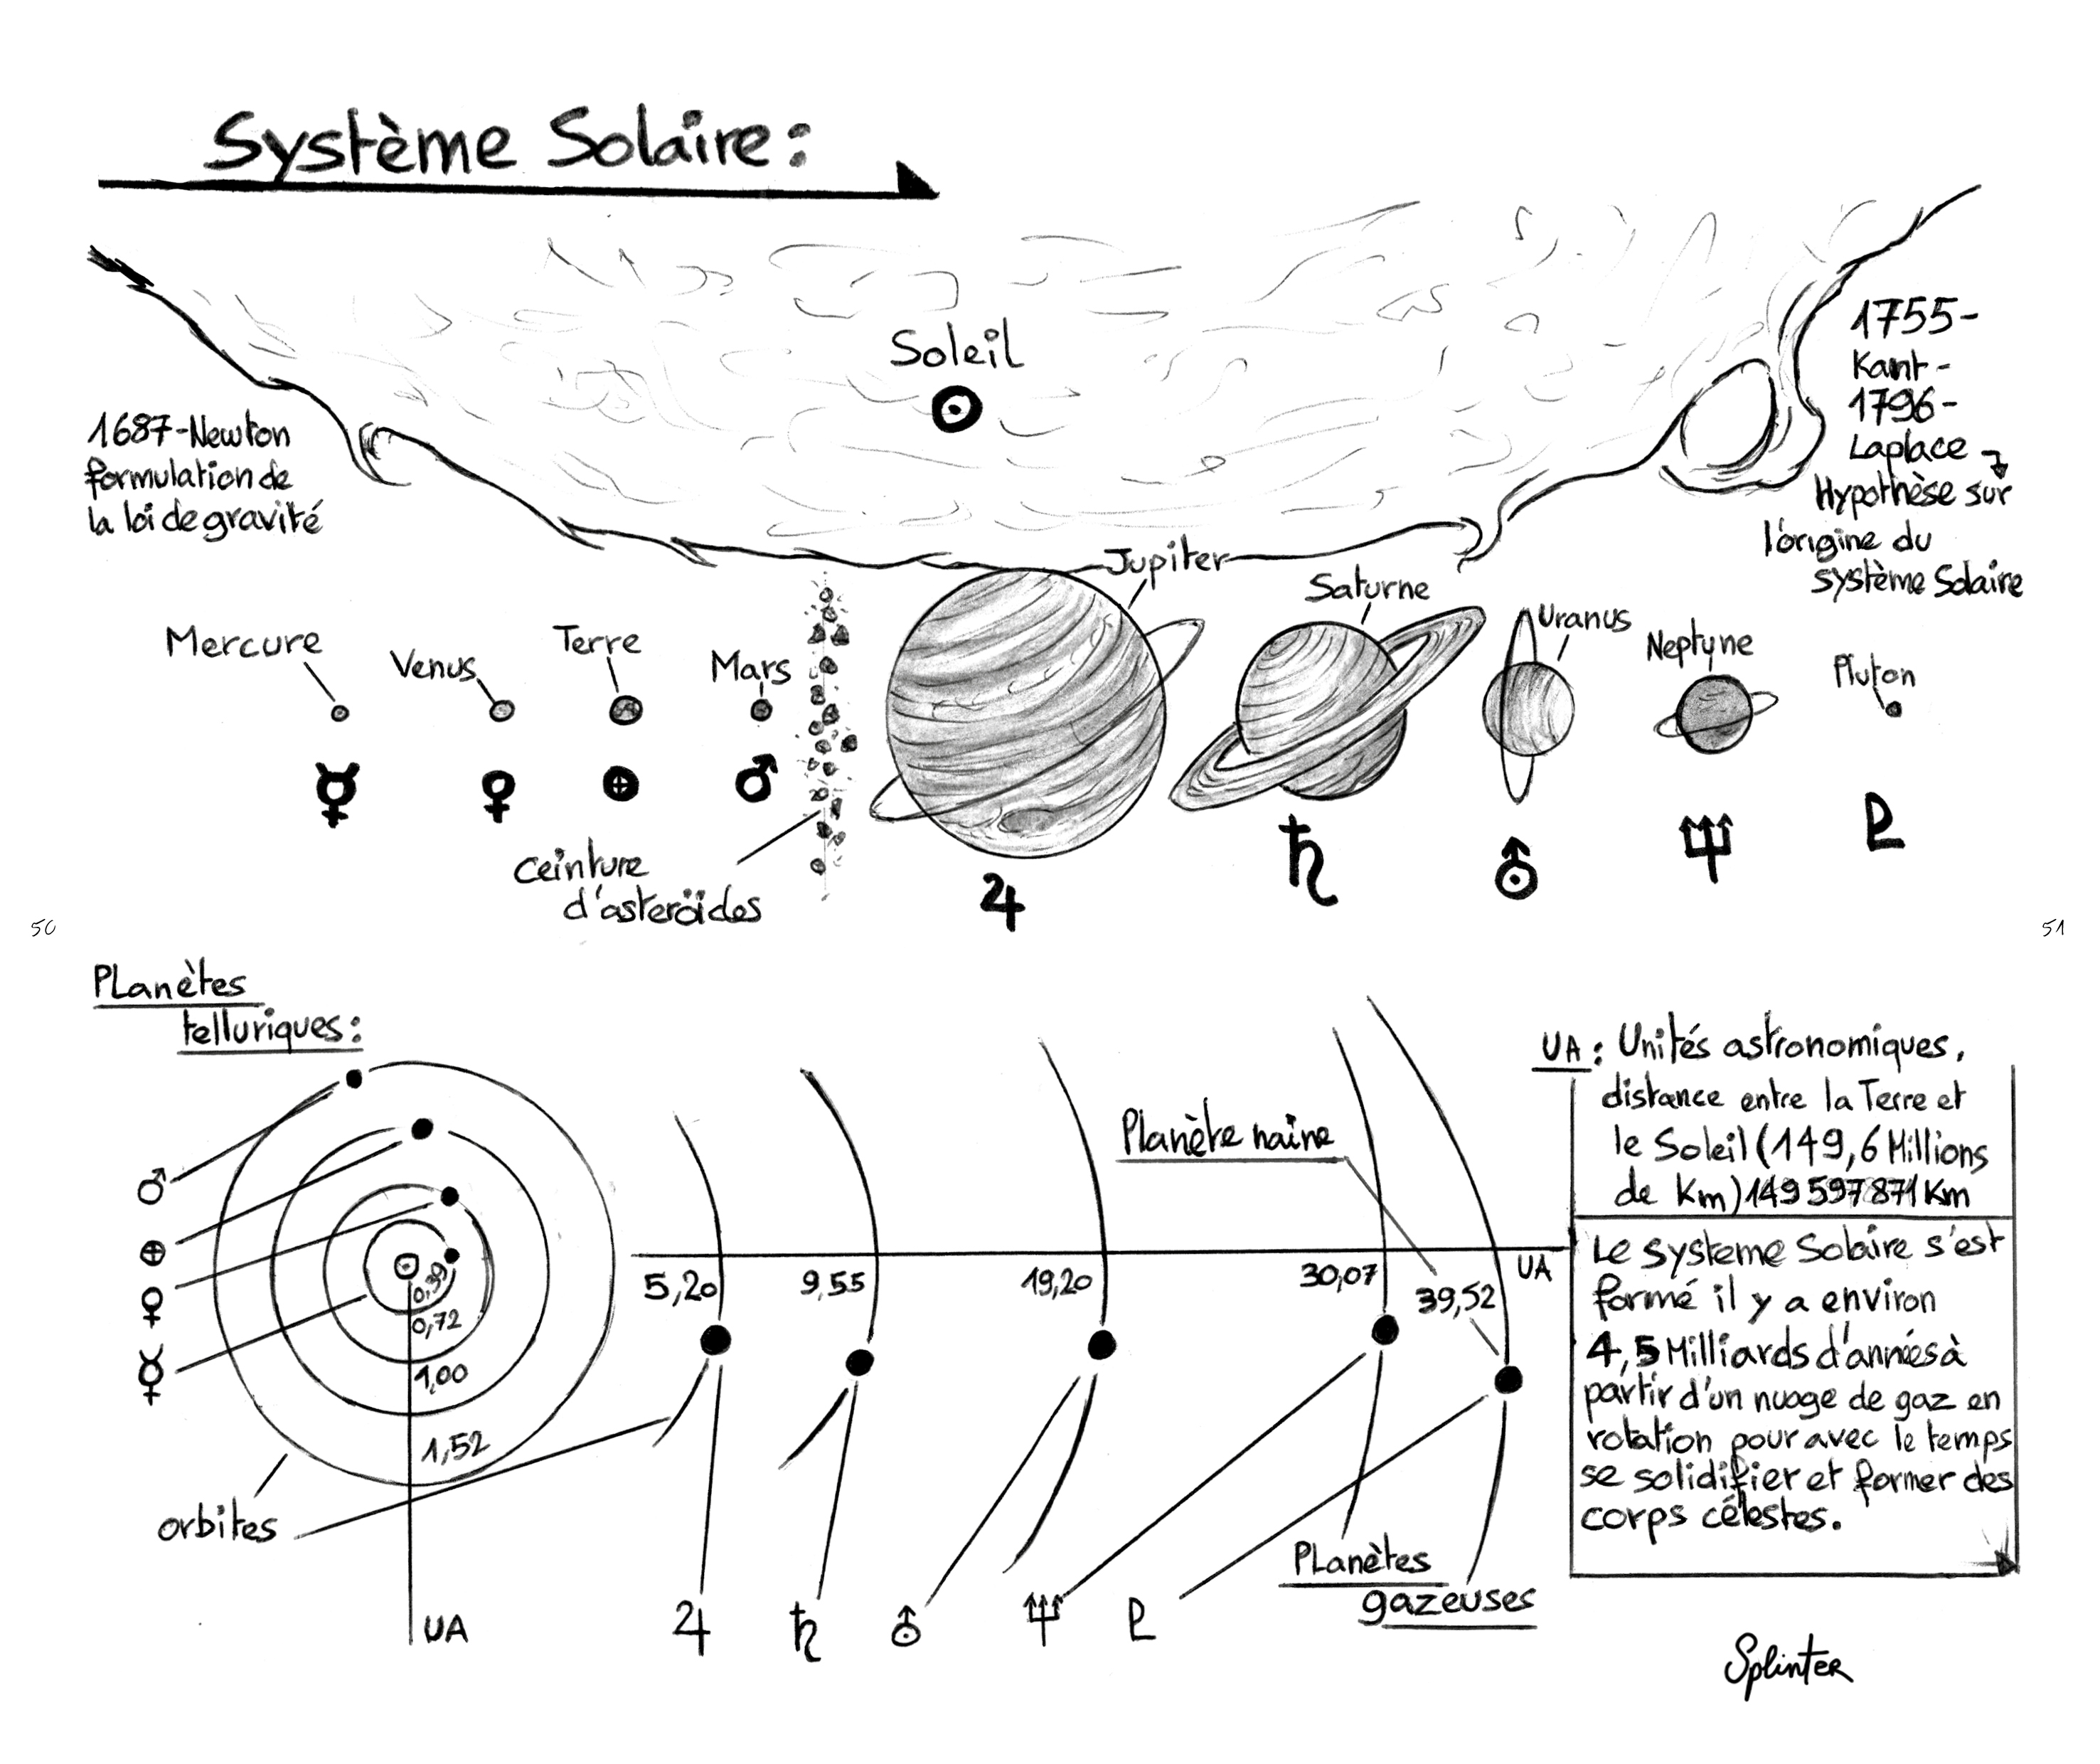 Système Solaire :
Soleil
1687-Newton
formulation de
la loi de gravité
1755-
Kant-
1796-
Laplace
Hypothèse sur
l'origine du
système Solaire
Mercure
Venus
Terre
Mars
Jupiter
Saturne
Uranus
Neptune
Pluton
☿ ♀ ⊕ ♂ ♃ ♄ ⛢ ♆ ♇
Ceinture
d'asteroïdes
50
51
Planètes
telluriques :
♂
⊕
♀
☿
0,39
0,72
1,00
1,52
orbites
UA
5,20
9,55
19,20
30,07
39,52
UA
Planète naine
♃ ♄ ⛢ ♆ ♇
Planètes
gazeuses
UA : Unités astronomiques,
distance entre la Terre et
le Soleil (149,6 Millions
de Km) 149 597 871 Km
Le systeme Solaire s'est
formé il y a environ
4,5 Milliards d'années à
partir d'un nuage de gaz en
rotation pour avec le temps
se solidifier et former des
corps célestes.
Splinter